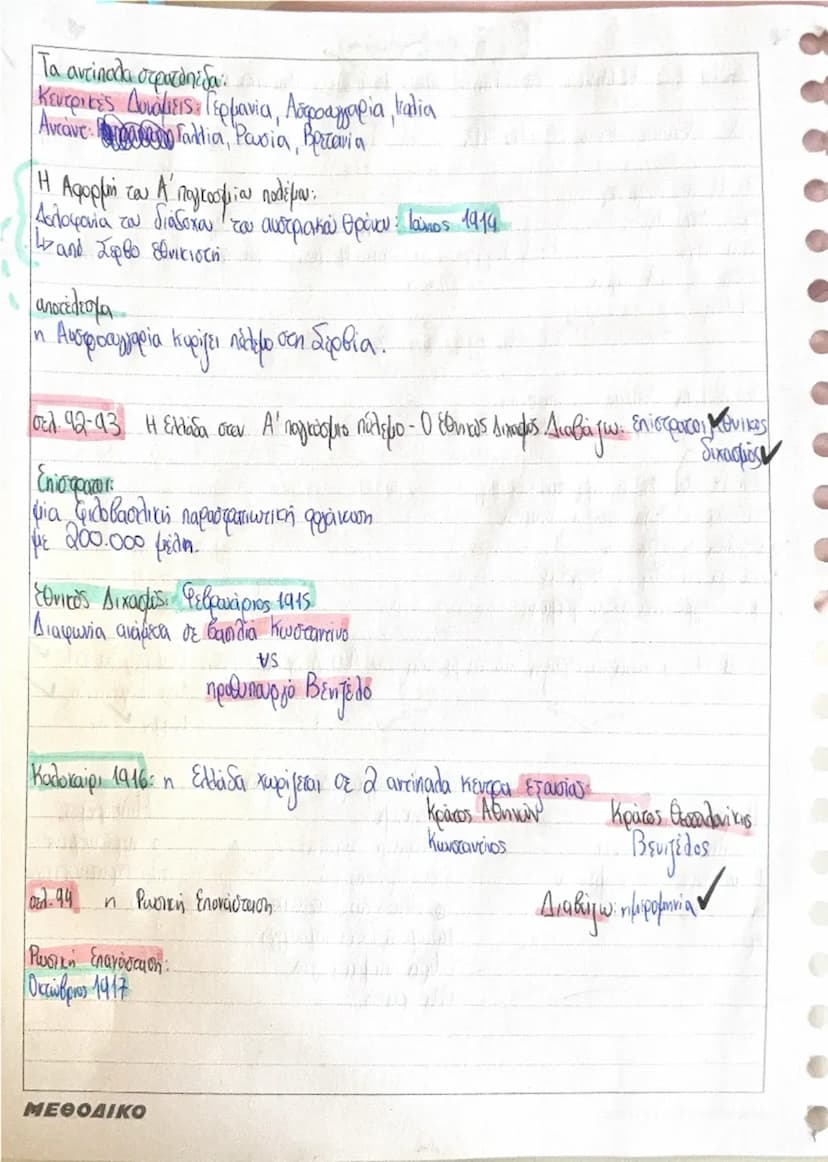 Τα αντίπαλα στρατόπεδα:
Κεντρικές Δυνάμεις: Γερμανία, Αυστροουγγαρία, Ιταλία
Αντάντ: Γαλλία, Ρωσία, Βρετανία
Η Αφορμή του Α' παγκοσμίου πολέμου:
Δολοφονία του διαδόχου του αυστριακού θρόνου: Ιούνιος 1914
↳ από Σέρβο εθνικιστή
αποτέλεσμα
η Αυστροουγγαρία κυρίζει πόλεμο στη Σερβία.
σελ. 92-93 Η Ελλάδα στον Α' παγκόσμιο πόλεμο - Ο Εθνικός Διχασμός Διαβάζω: Επίστρατοι, εθνικός
διχασμός
Επίστρατοι:
μία φιλοβασιλική παραστρατιωτική οργάνωση
με 200.000 μέλη.
Εθνικός Διχασμός: Φεβρουάριος 1915
Διαφωνία ανάμεσα σε βασιλιά Κωσταντίνο
vs
πρωθυπουργό Βενιζέλο
Καλοκαίρι 1916: η Ελλάδα χωρίζεται σε 2 αντίπαλα κέντρα εξουσίας
Κράτος Αθηνών Κράτος Θεσσαλονίκης
Κωνσταντίνος Βενιζέλος
σελ. 94 η Ρωσική Επανάσταση Διαβάζω: ημερομηνία
Ρωσική Επανάσταση:
Οκτώβριος 1917
ΜΕΘΟΔΙΚΟ